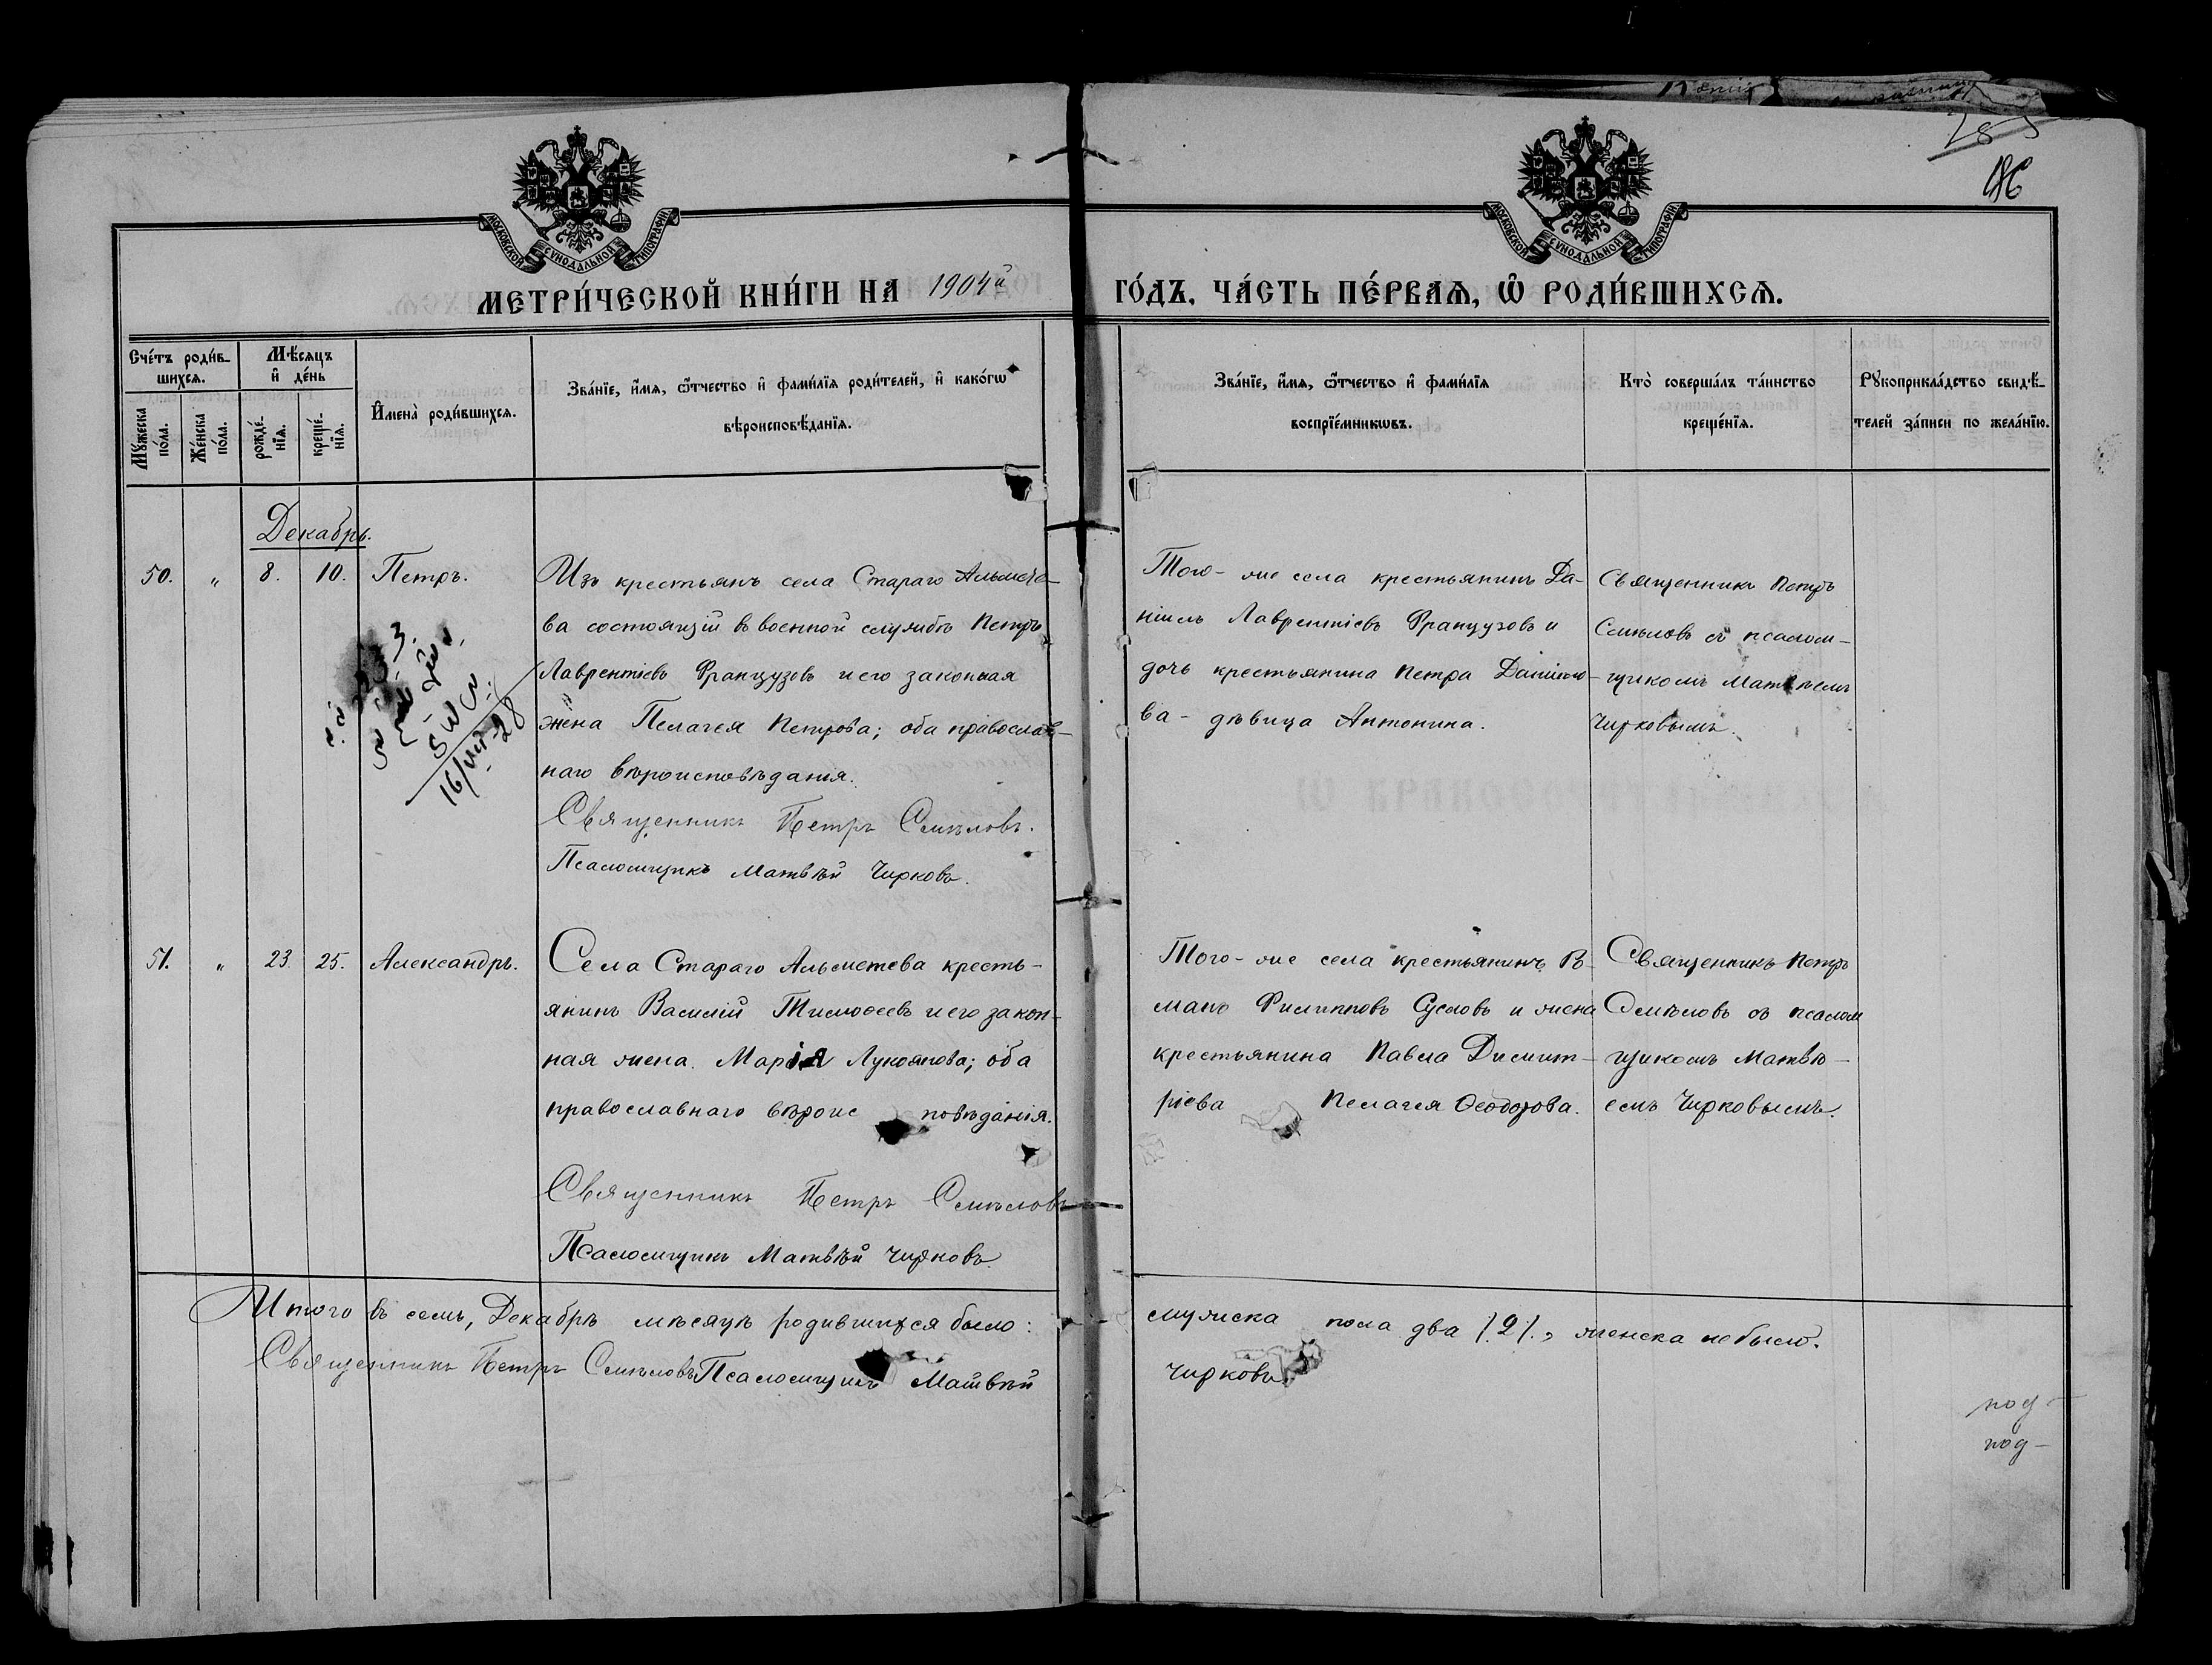 МОСКОВСКОЙ СѴНОДАЛЬНОЙ ТИПОГРАФІИ
МОСКОВСКОЙ СѴНОДАЛЬНОЙ ТИПОГРАФІИ
МЕТРИ́ЧЕСКОЙ КНИ́ГИ НА 1904й ГО́ДЪ, ЧА́СТЬ ПЕ́РВАѦ, Ѡ РОДИ́ВШИХСѦ.
Сче́тъ роди́в-
шихсѧ.
Мѣ́сѧцъ
и҆ де́нь
Мꙋ́жеска
по́ла.
Же́нска
по́ла.
рожде́-
нїѧ.
креще́-
нїѧ.
И҆мена̀ роди́вшихсѧ.
Зва́нїе, и҆́мѧ, ѻ҆́тчество и҆ фами́лїѧ роди́телей, и҆ како́гѡ
вѣроисповѣ́данїѧ.
Зва́нїе, и҆́мѧ, ѻ҆́тчество и҆ фами́лїѧ
воспрїе́мникѡвъ.
Кто̀ соверша́лъ та́инство
креще́нїѧ.
Рꙋкоприкла́дство свидѣ́-
телей за́писи по жела́нїю.
Декабрь.
50. " 8. 10. Петръ.
Изъ крестьянъ села Стараго Альмете-
ва состоящій въ военной службѣ Петръ
Лаврентіевъ Французовъ и его законная
жена Пелагея Петрова; оба православ-
наго вѣроисповѣданія.
Священникъ Петръ Смѣловъ.
Псаломщикъ Матвѣй Чирковъ.
Того-же села крестьянинъ Да-
ніилъ Лаврентіевъ Французовъ и
дочь крестьянина Петра Даніило-
ва - дѣвица Антонина.
Священникъ Петръ
Смѣловъ съ псалом-
щикомъ Матвѣемъ
Чирковымъ.
51. " 23. 25. Александръ.
Села Стараго Альметева кресть-
янинъ Василій Тимоѳеевъ и его закон-
ная жена Марія Лукоянова; оба
православнаго вѣроисповѣданія.
Священникъ Петръ Смѣловъ
Псаломщикъ Матвѣй Чирковъ.
Того-же села крестьянинъ Ро-
манъ Филипповъ Сусловъ и жена
крестьянина Павла Димит-
ріева Пелагея Ѳеодорова.
Священникъ Петръ
Смѣловъ съ псалом
щикомъ Матвѣ-
емъ Чирковымъ.
Итого въ семъ, Декабрѣ мѣсяцѣ родившихся было: мужеска пола два /.2/., женска не было.
Священникъ Петръ Смѣловъ Псаломщикъ Матвѣй Чирковъ.
под-
под-